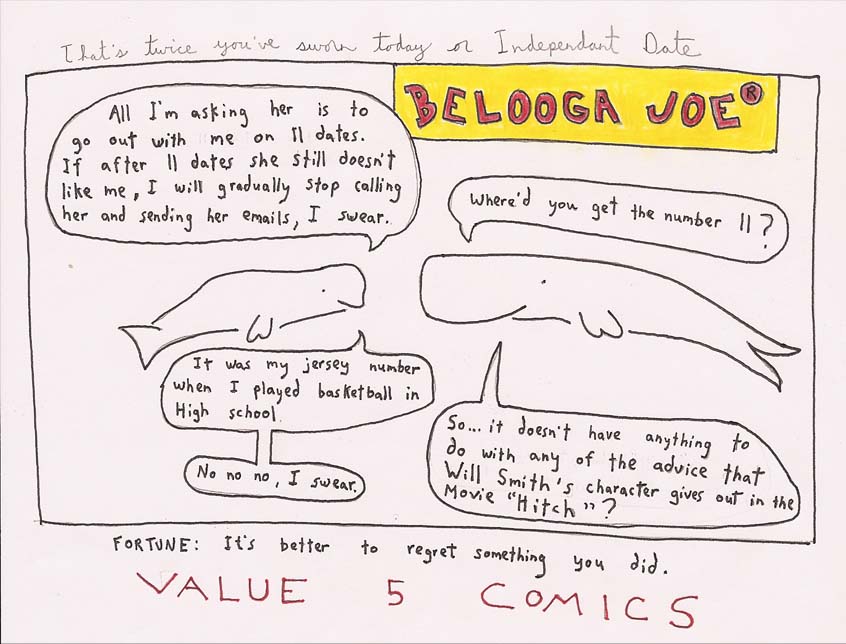 That's twice you've sworn today or Independant Date
BELOOGA JOE®
All I'm asking her is to
go out with me on 11 dates.
If after 11 dates she still doesn't
like me, I will gradually stop calling
her and sending her emails, I swear.
Where'd you get the number 11?
It was my jersey number
when I played basketball in
High school.
No no no, I swear.
So... it doesn't have anything to
do with any of the advice that
Will Smith's character gives out in the
Movie "Hitch"?
FORTUNE: It's better to regret something you did.
VALUE 5 COMICS